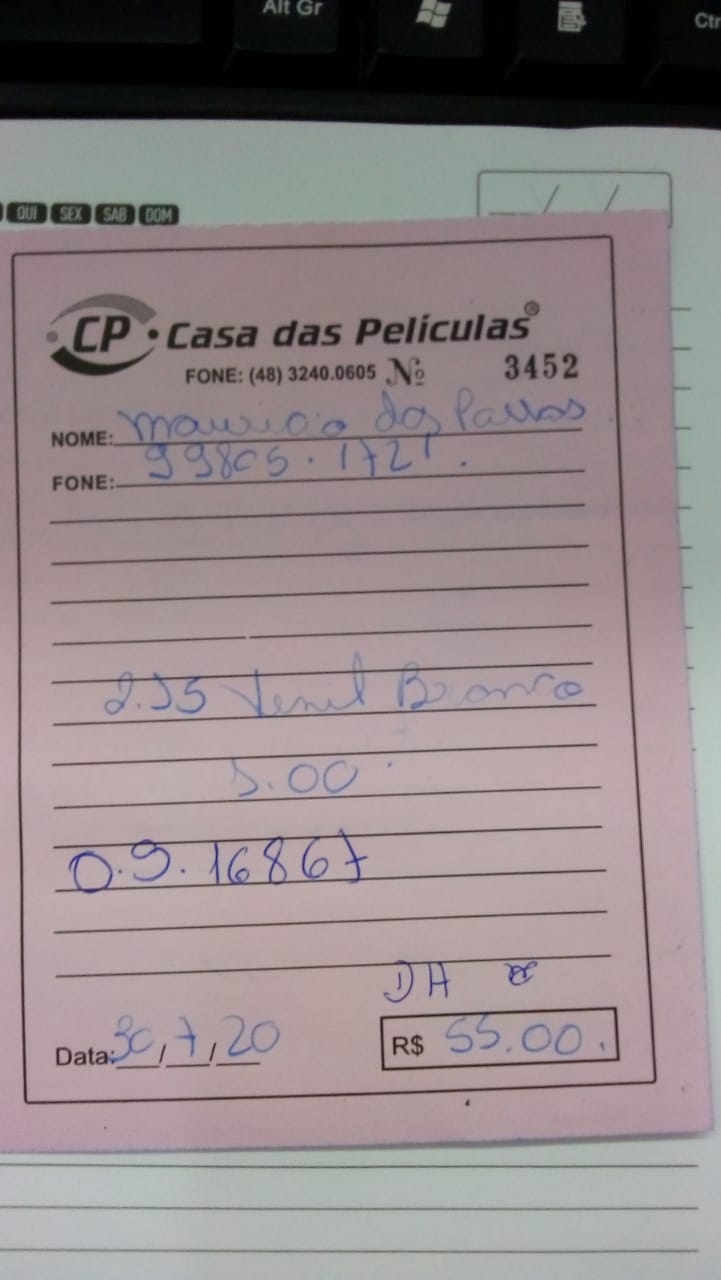 Alt Gr
Ctr
QUI SEX SAB DOM
CP Casa das Películas®
FONE: (48) 3240.0605 Nº 3452
NOME: Mauricio dos Passos
FONE: 99805.1721.
Branco
5.00
O.S. 16867
DH
Data: 30/7/20 R$ 55.00.